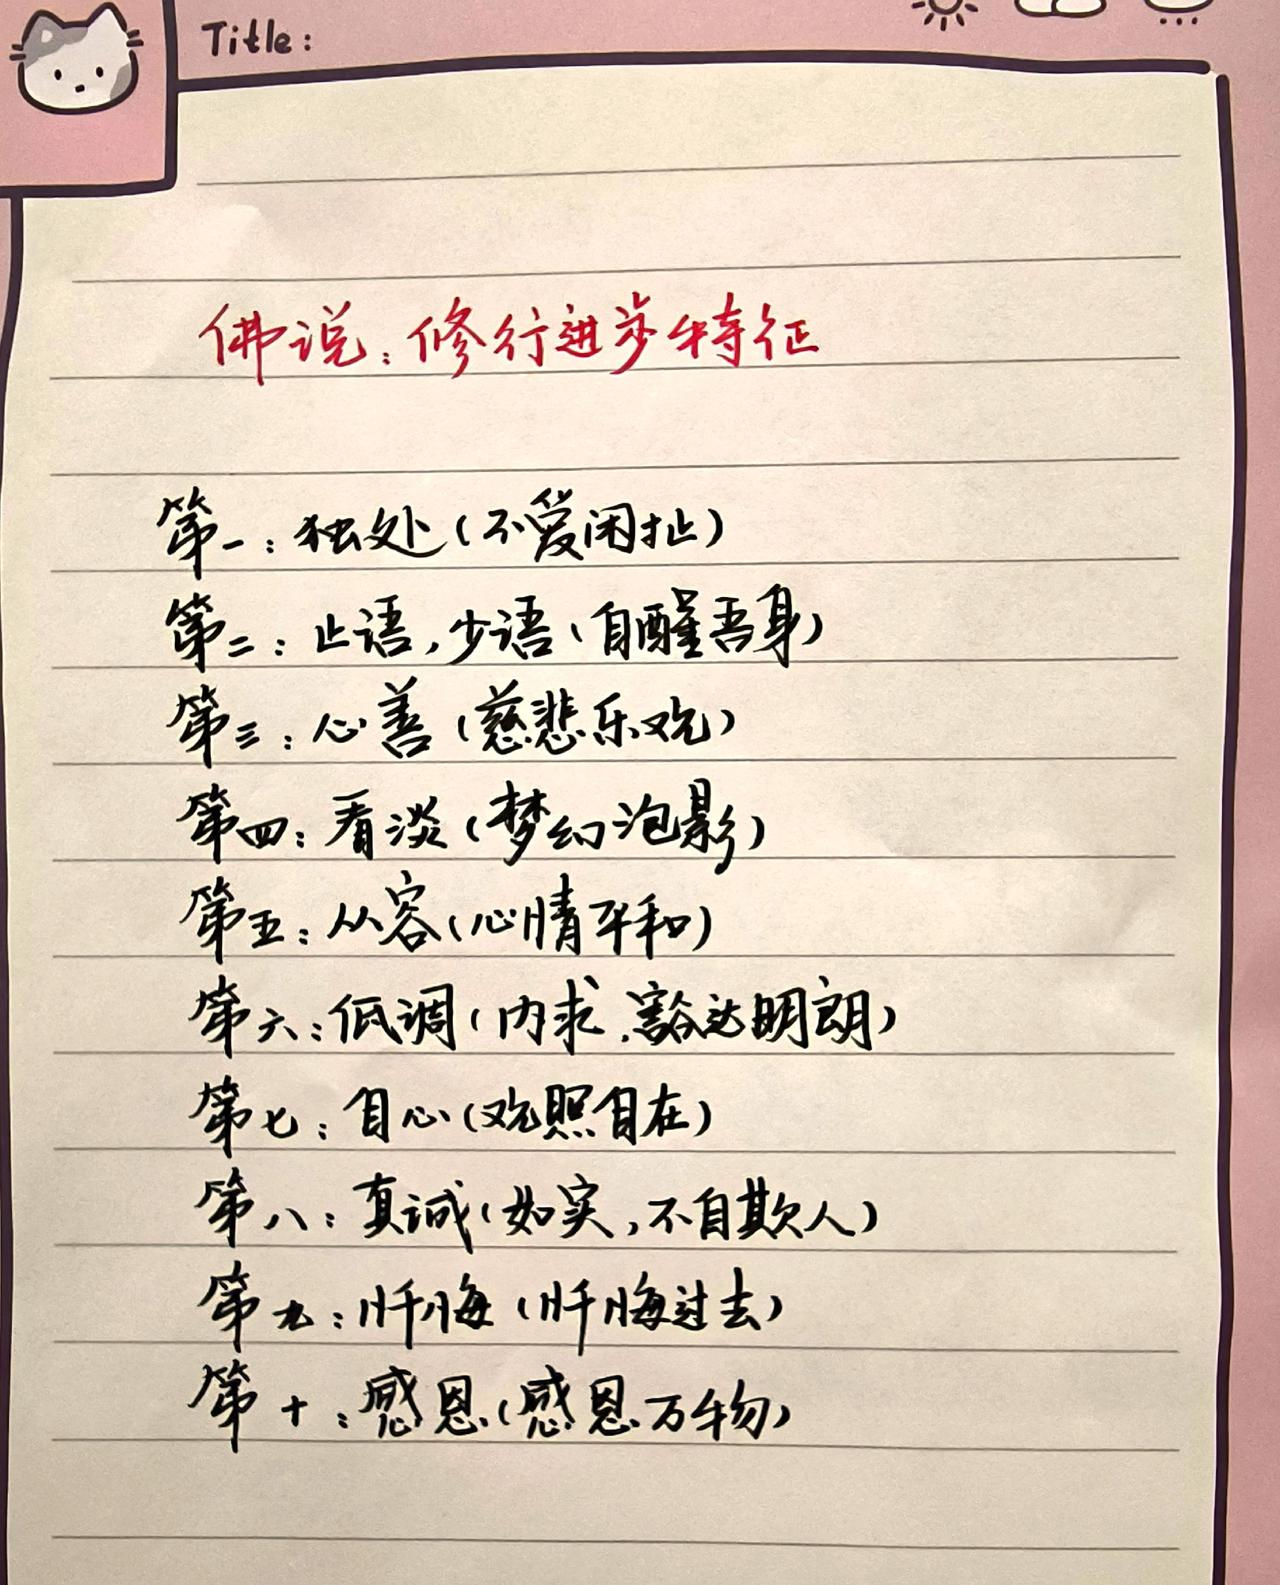 Title:
佛说:修行进步特征
第一:独处(不爱闲扯)
第二:止语,少语(自醒吾身)
第三:心善(慈悲乐观)
第四:看淡(梦幻泡影)
第五:从容(心情平和)
第六:低调(内求.豁达明朗)
第七:自心(观照自在)
第八:真诚(如实,不自欺人)
第九:忏悔(忏悔过去)
第十:感恩(感恩万物)